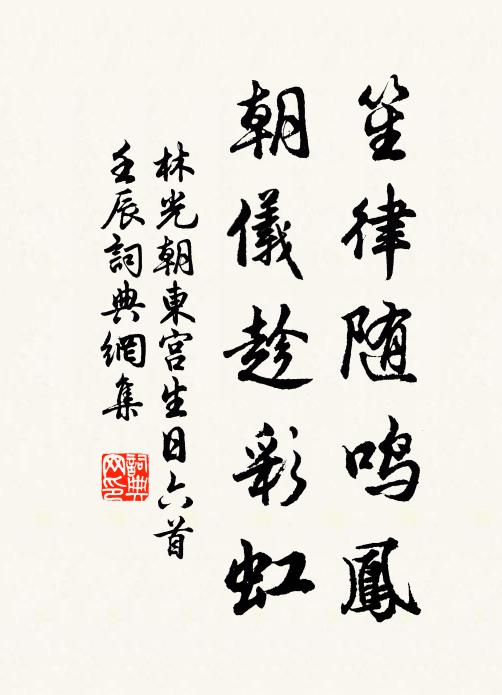 笙律随鸣鳳
朝儀趁彩虹
林光朝東宫生日六首
壬辰詞典網集
詞典网印